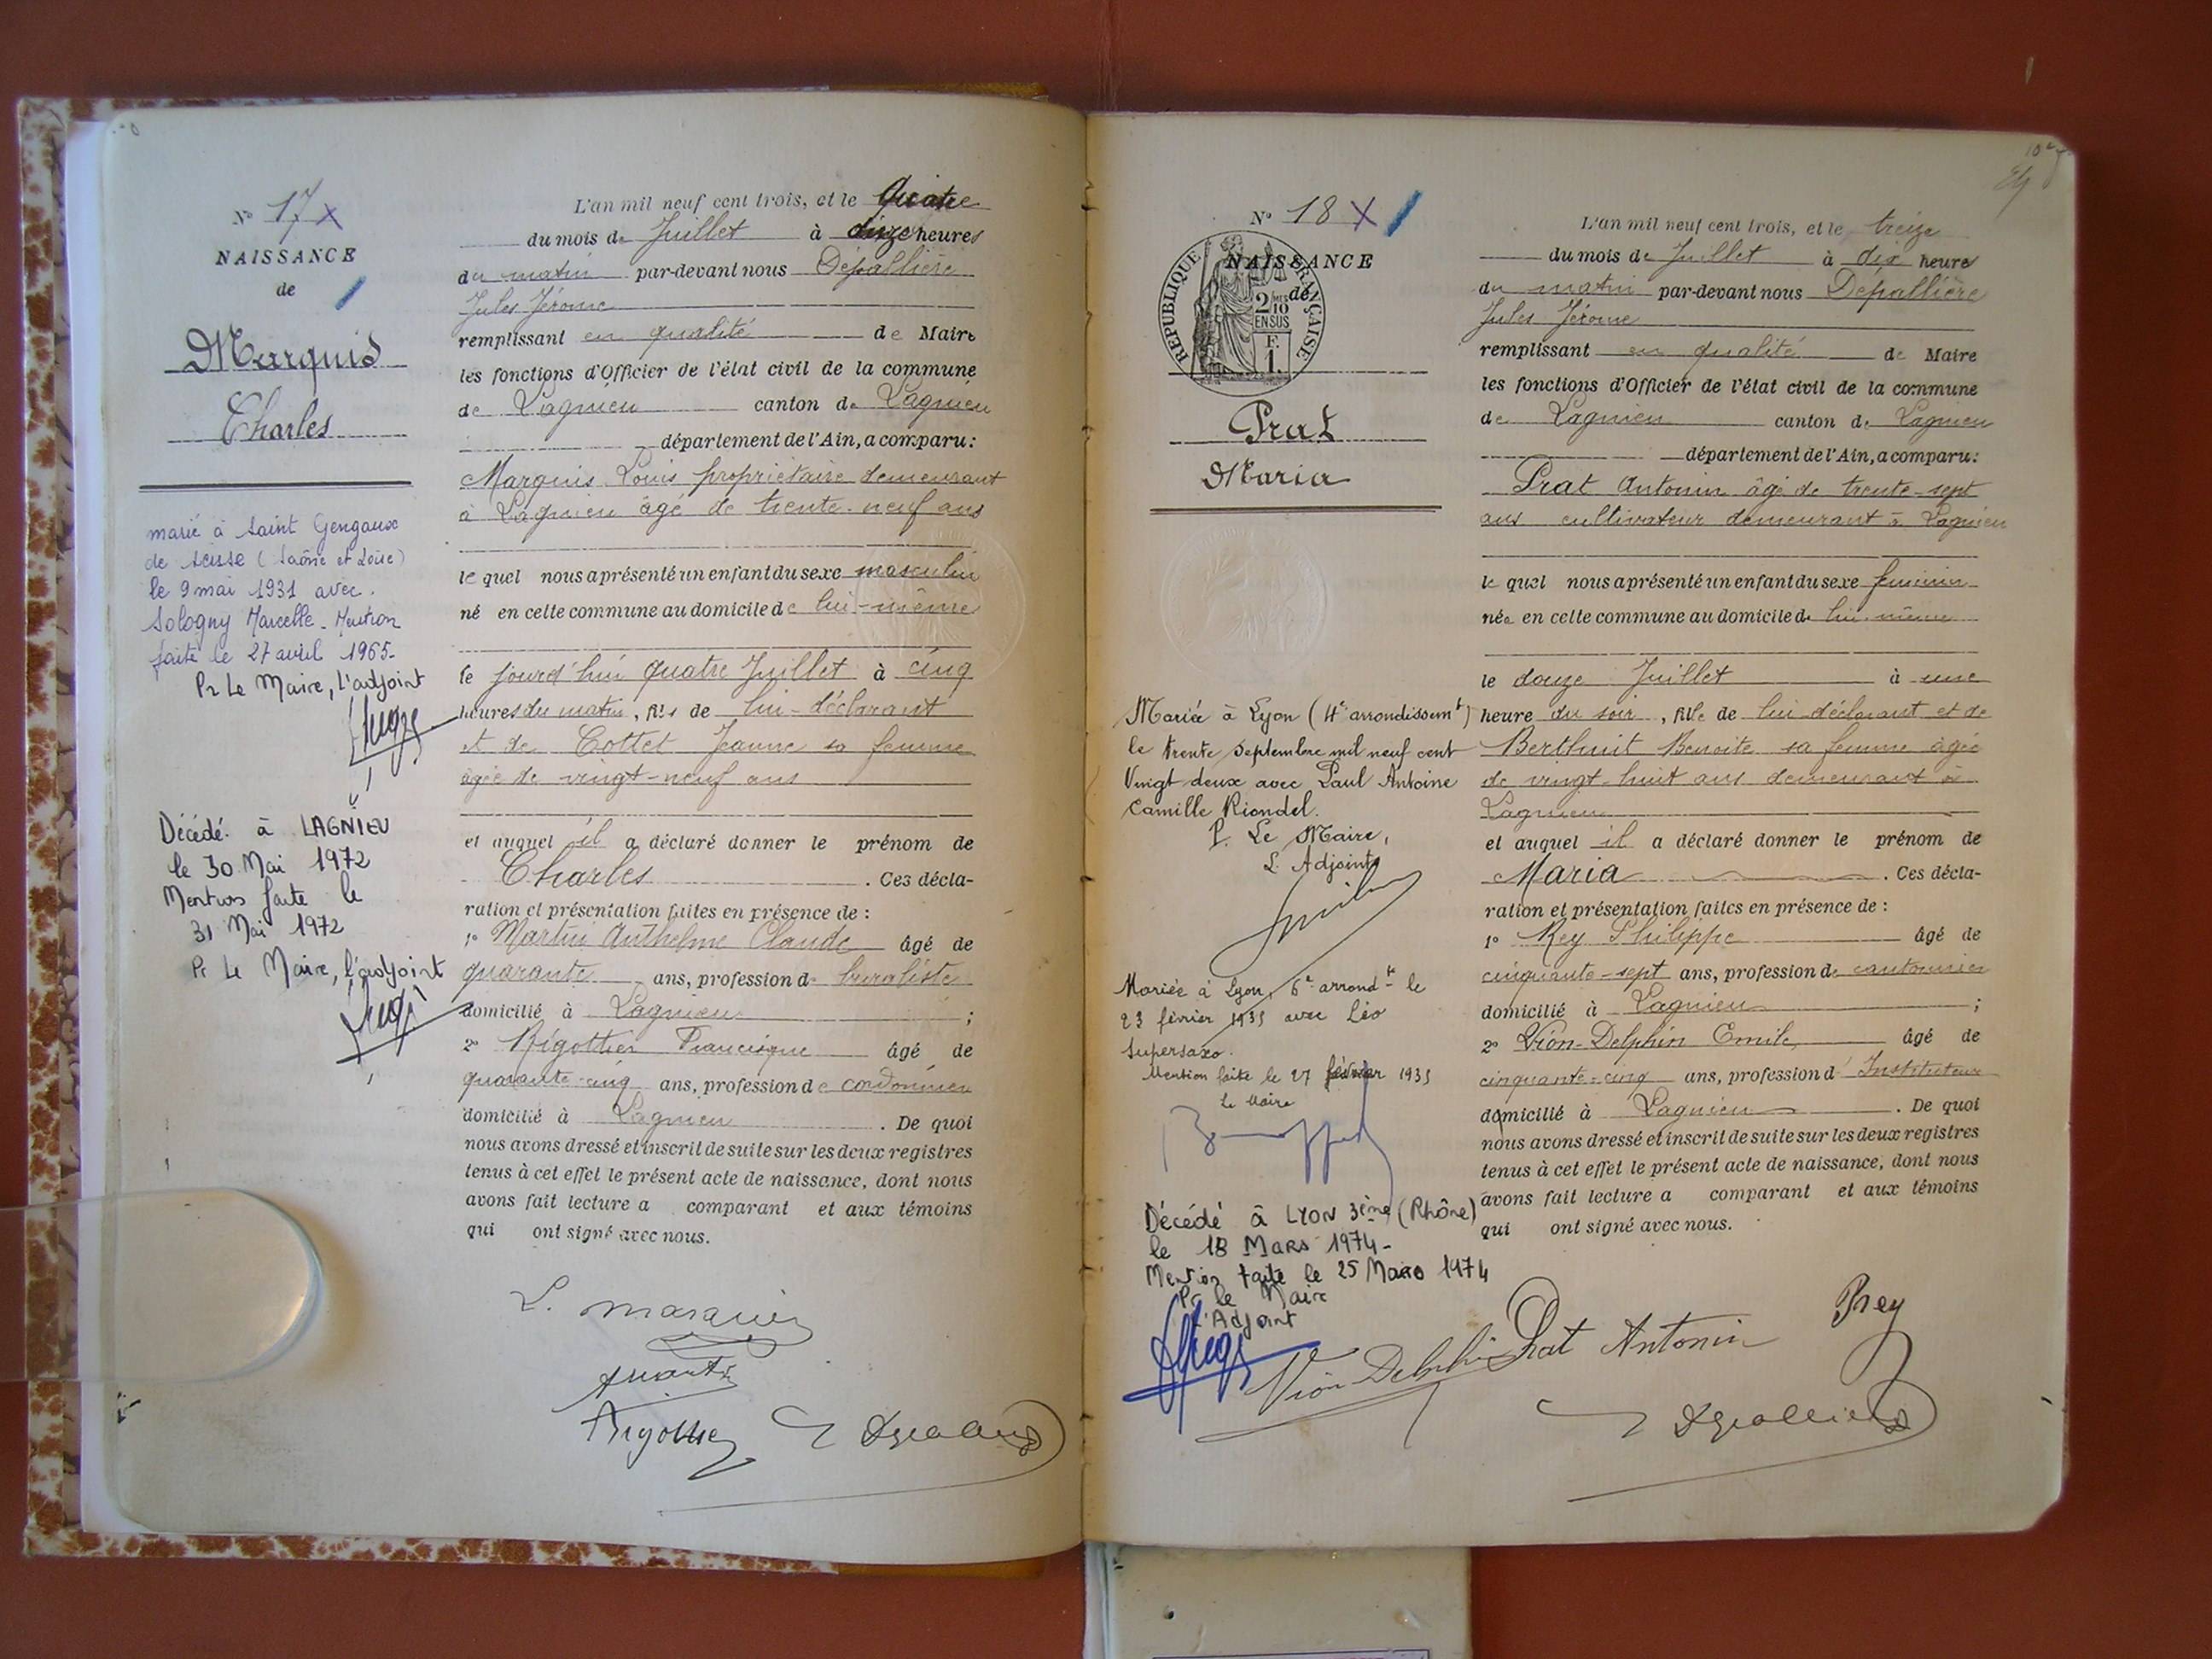 N° 17
NAISSANCE
de
Marquis
Charles
marié à Saint Gengoux
de scisse (Saône et Loire)
le 9 mai 1931 avec
Sologny Marcelle. Mention
faite le 27 avril 1965-
Pr Le Maire, l'adjoint
Décédé à LAGNIEU
le 30 Mai 1972
Mention faite le
31 Mai 1972
Pr Le Maire, l'adjoint
L'an mil neuf cent trois, et le quatre
du mois de Juillet à heures
du matin par-devant nous Depallière
Jules Jérome
remplissant en qualité de Maire
les fonctions d'Officier de l'état civil de la commune
de Lagnieu canton de Lagnieu
département de l'Ain, a comparu:
Marquis Louis propriétaire demeurant
à Lagnieu âgé de trente-neuf ans
le quel nous a présenté un enfant du sexe masculin
né en cette commune au domicile de lui-même
le jourd'hui quatre Juillet à cinq
heures du matin, fils de lui-déclarant
et de Cottet Jeanne sa femme
âgée de vingt-neuf ans
et auquel il a déclaré donner le prénom de
Charles. Ces décla-
ration et présentation faites en présence de :
1° Martin Anthelme Claude âgé de
quarante ans, profession de buraliste
domicilié à Lagnieu ;
2° Rigottier Francisque âgé de
quarante-cinq ans, profession de cordonnier
domicilié à Lagnieu. De quoi
nous avons dressé et inscrit de suite sur les deux registres
tenus à cet effet le présent acte de naissance, dont nous
avons fait lecture a comparant et aux témoins
qui ont signé avec nous.
L. Marquis
Rigottier
N° 18
NAISSANCE
de
REPUBLIQUE FRANÇAISE
2/10 EN SUS
F. 1.
Prat
Maria
Mariée à Lyon (4e arrondissemt)
le trente septembre mil neuf cent
Vingt deux avec Paul Antoine
Camille Riondel.
P. Le Maire,
L'Adjoint
Mariée à Lyon, 6e arrondt le
23 février 1935 avec Léo
Supersaxo.
Mention faite le 27 février 1935
Le Maire
Décédé à LYON 3ème (Rhône)
le 18 MARS 1974-
Mention faite le 25 Mars 1974
Pr le Maire
L'Adjoint
L'an mil neuf cent trois, et le treize
du mois de Juillet à dix heures
du matin par-devant nous Depallière
Jules Jérome
remplissant en qualité de Maire
les fonctions d'Officier de l'état civil de la commune
de Lagnieu canton de Lagnieu
département de l'Ain, a comparu:
Prat Antonin âgé de trente-sept
ans cultivateur demeurant à Lagnieu
le quel nous a présenté un enfant du sexe féminin
née en cette commune au domicile de lui-même
le douze Juillet à une
heure du soir, fille de lui-déclarant et de
Berthuit Benoite sa femme âgée
de vingt-huit ans demeurant à
Lagnieu
et auquel il a déclaré donner le prénom de
Maria. Ces décla-
ration et présentation faites en présence de :
1° Rey Philippe âgé de
cinquante-sept ans, profession de cantonnier
domicilié à Lagnieu ;
2° Vion-Delphin Emile âgé de
cinquante-cinq ans, profession d'Instituteur
domicilié à Lagnieu. De quoi
nous avons dressé et inscrit de suite sur les deux registres
tenus à cet effet le présent acte de naissance, dont nous
avons fait lecture a comparant et aux témoins
qui ont signé avec nous.
Prey
Vion Delphin Prat Antonin
Depallière